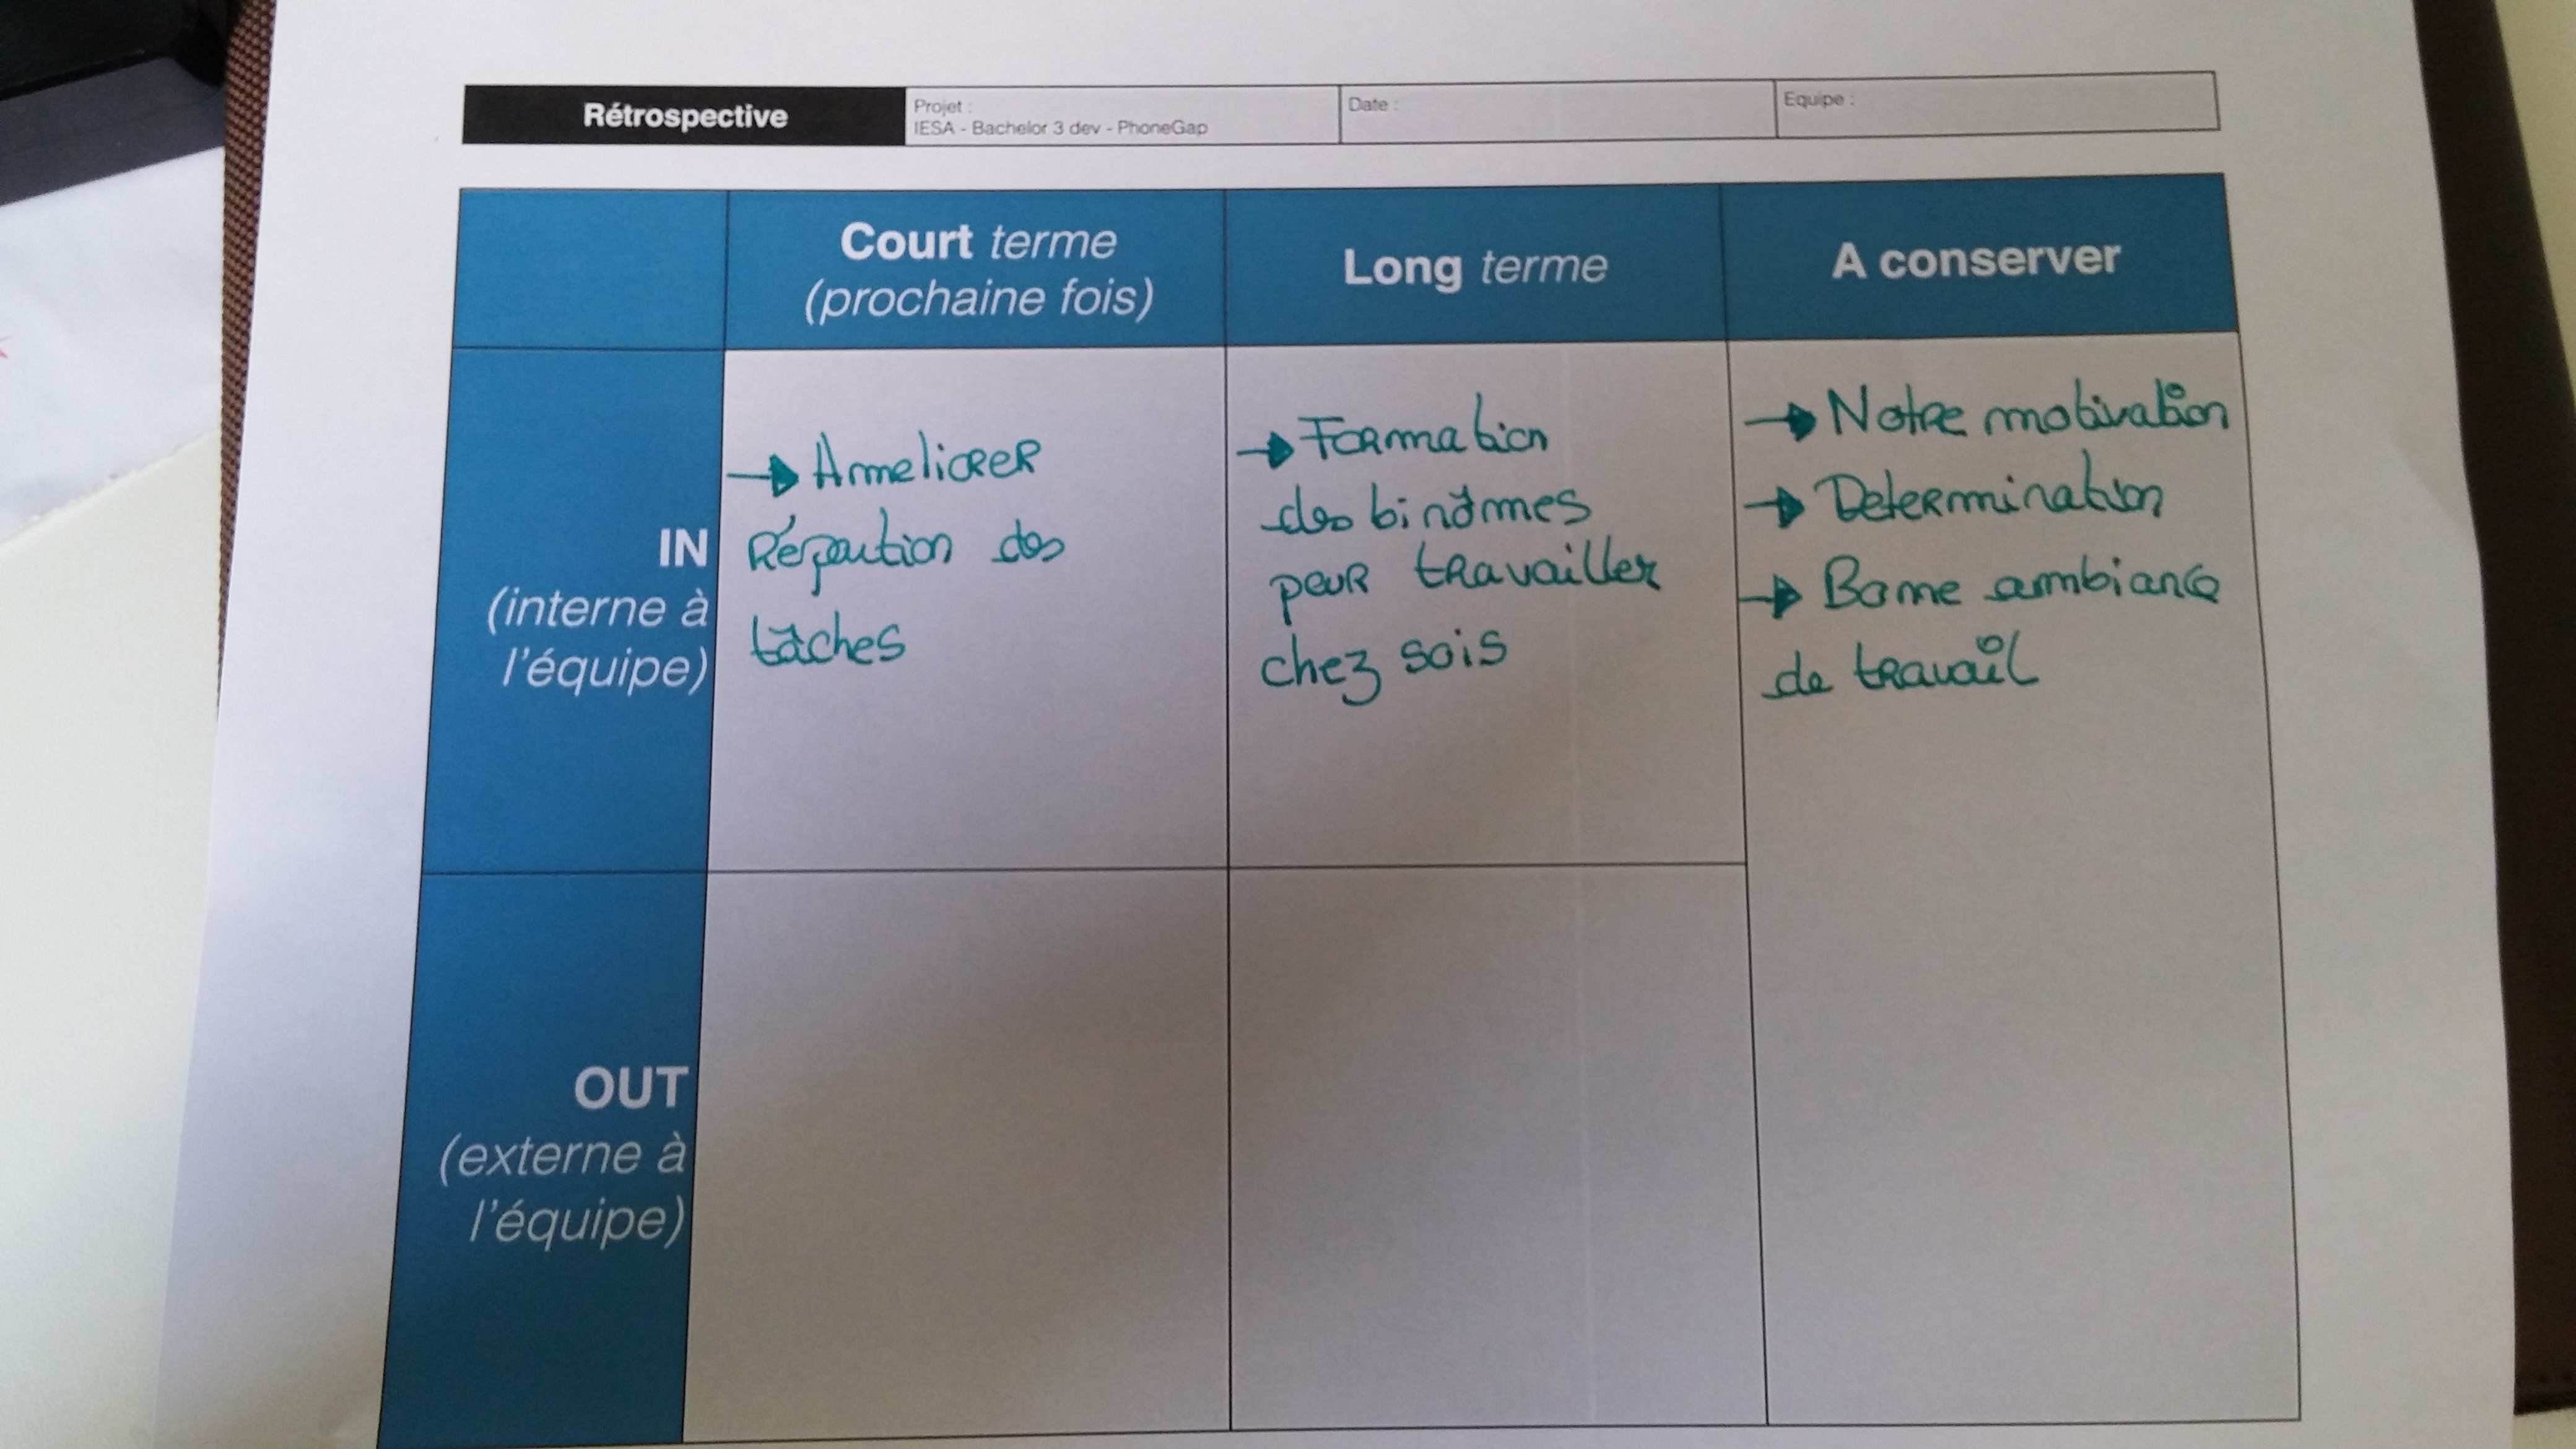 Rétrospective
Projet :
IESA - Bachelor 3 dev - PhoneGap
Date :
Equipe :
Court terme
(prochaine fois)
Long terme
A conserver
IN
(interne à
l'équipe)
→ Ameliorer
Répaution des
tâches
→ Formation
des binômes
pour travailler
chez sois
→ Notre motivation
→ Determination
→ Bonne ambiance
de travail
OUT
(externe à
l'équipe)